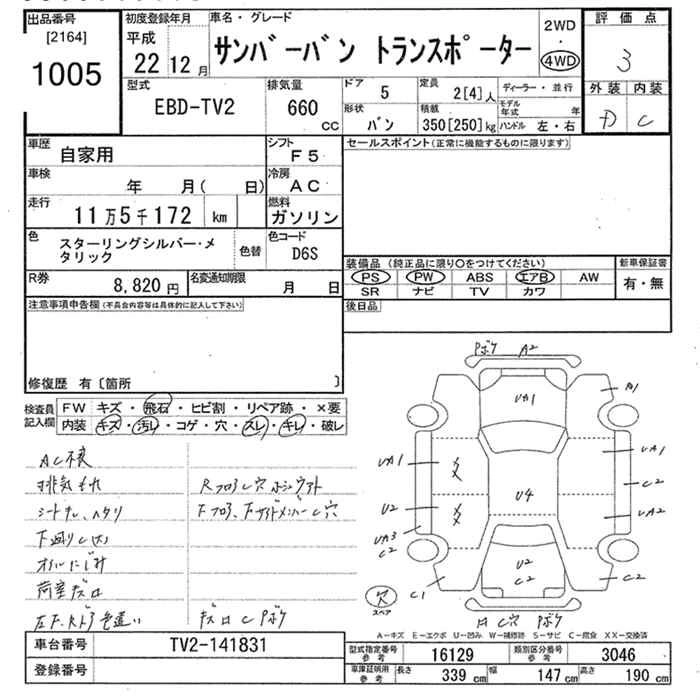 出品番号
[2164]
1005
初度登録年月
平成
22 12月
車名・グレード
サンバーバン トランスポーター
2WD
・
4WD
評価点
3
外装 内装
D C
型式
EBD-TV2
排気量
660
cc
ドア
5
形状
バン
定員
2[4]人
積載
350[250]kg
ディーラー・並行
モデル年式 年
ハンドル 左・右
車歴
自家用
シフト
F5
車検
年 月( 日)
冷房
AC
走行
11万5千172 km
燃料
ガソリン
色
スターリングシルバー・メ
タリック
色替
色コード
D6S
R券
8,820円
名変通知期限
月 日
セールスポイント(正常に機能するものに限ります)
装備品(純正品に限り〇をつけてください)
PS PW ABS エアB AW
SR ナビ TV カワ
新車保証書
有・無
後日品
注意事項申告欄(不具合内容等は具体的に記入して下さい)
修復歴 有〔箇所 〕
検査員
記入欄
FW キズ・飛石・ヒビ割・リペア跡・×要
内装 キズ・汚レ・コゲ・穴・スレ・キレ・破レ
AC不良
排気もれ
シートキレ、ヘタリ
下廻りC(大)
オイルにじみ
荷室キズ凹
左F.Rドア色違い
RフロアC穴
Fフロア、FサイドメンバーC穴
キズ凹Cボケ
ボケ A2
UA1
A1
UA1
UA1
C2
U2
U4
UA2
UA3
C2
U2
C2
C1
C2
スペア
凹 C穴 ボケ
A-キズ E-エクボ U-凹み W-補修跡 S-サビ C-腐食 XX-交換済
車台番号
TV2-141831
登録番号
型式指定番号
参考
16129
類別区分番号
参考
3046
車庫証明用
参考
長さ
339 cm
幅
147 cm
高さ
190 cm